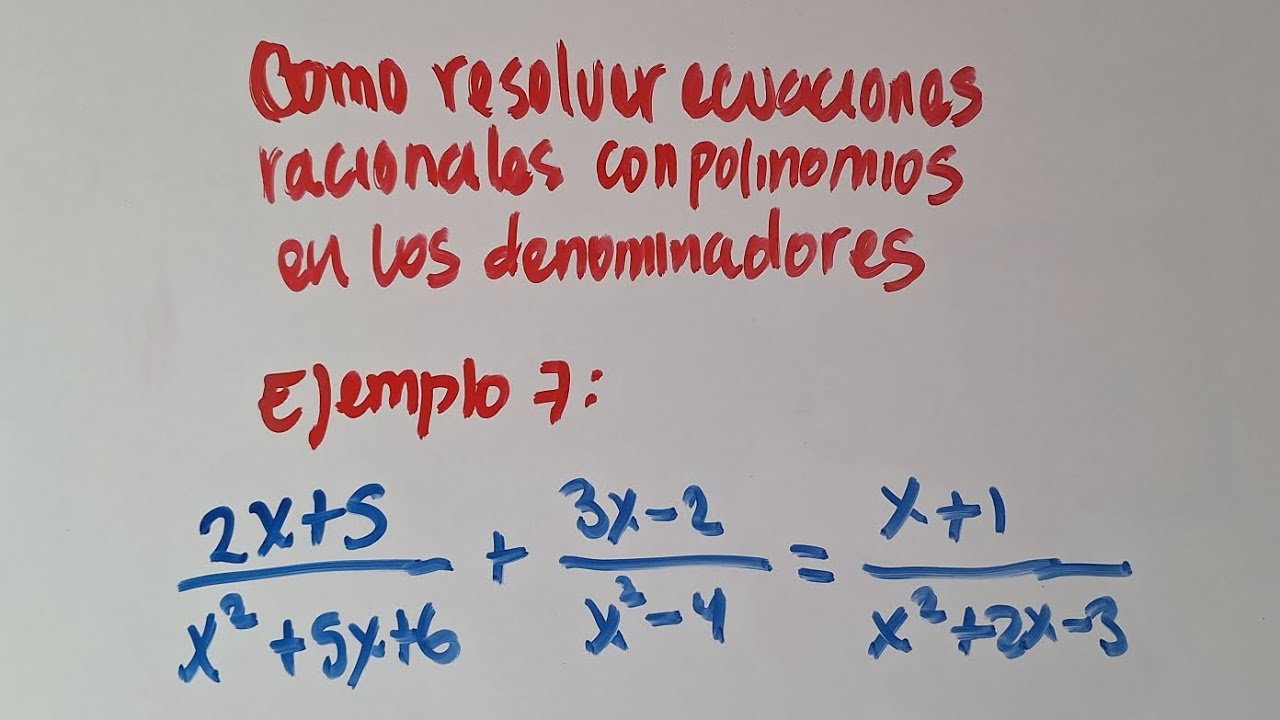 Como resolver ecuaciones
racionales con polinomios
en los denominadores
Ejemplo 7:
2x+5 + 3x-2 = x+1
x²+5x+6 x²-4 x²+2x-3